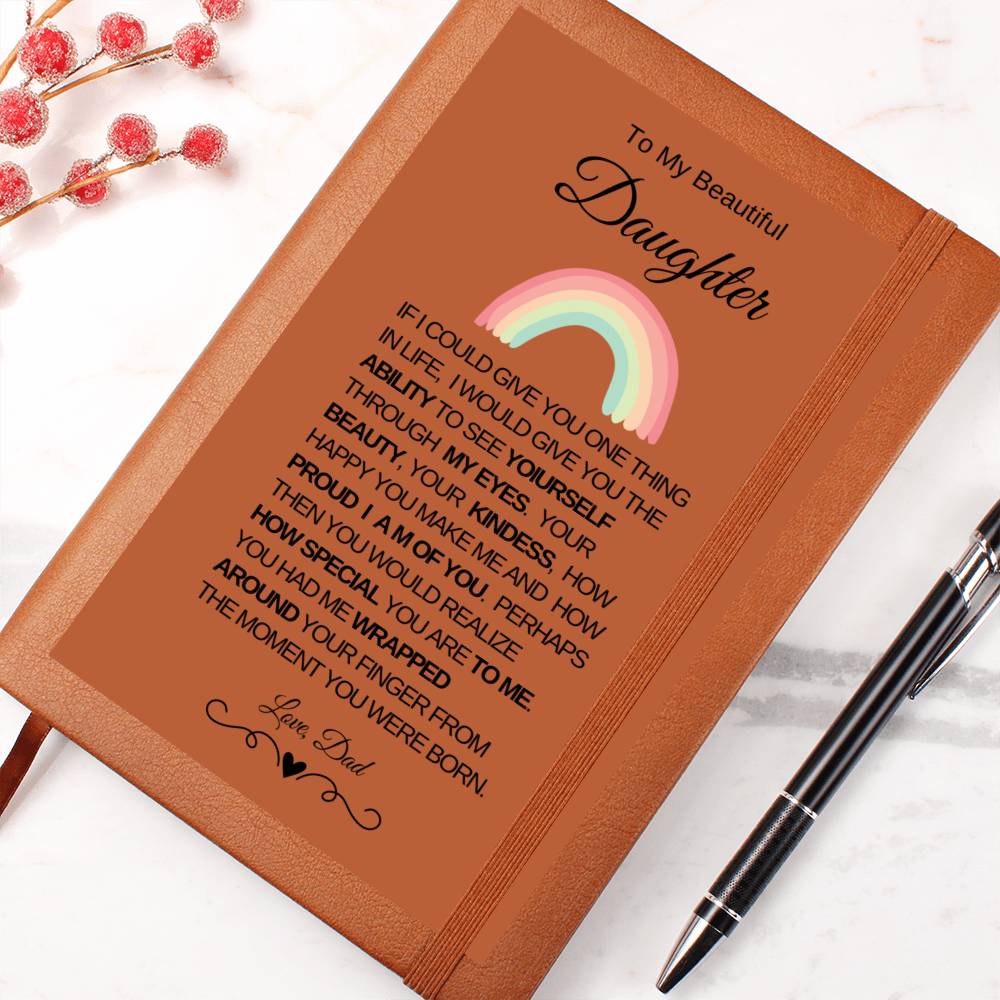 To My Beautiful
Daughter
IF I COULD GIVE YOU ONE THING
IN LIFE, I WOULD GIVE YOU THE
ABILITY TO SEE YOIURSELF
THROUGH MY EYES, YOUR
BEAUTY, YOUR KINDESS, HOW
HAPPY YOU MAKE ME AND HOW
PROUD I AM OF YOU. PERHAPS
THEN YOU WOULD REALIZE
HOW SPECIAL YOU ARE TO ME.
YOU HAD ME WRAPPED
AROUND YOUR FINGER FROM
THE MOMENT YOU WERE BORN.
Love, Dad